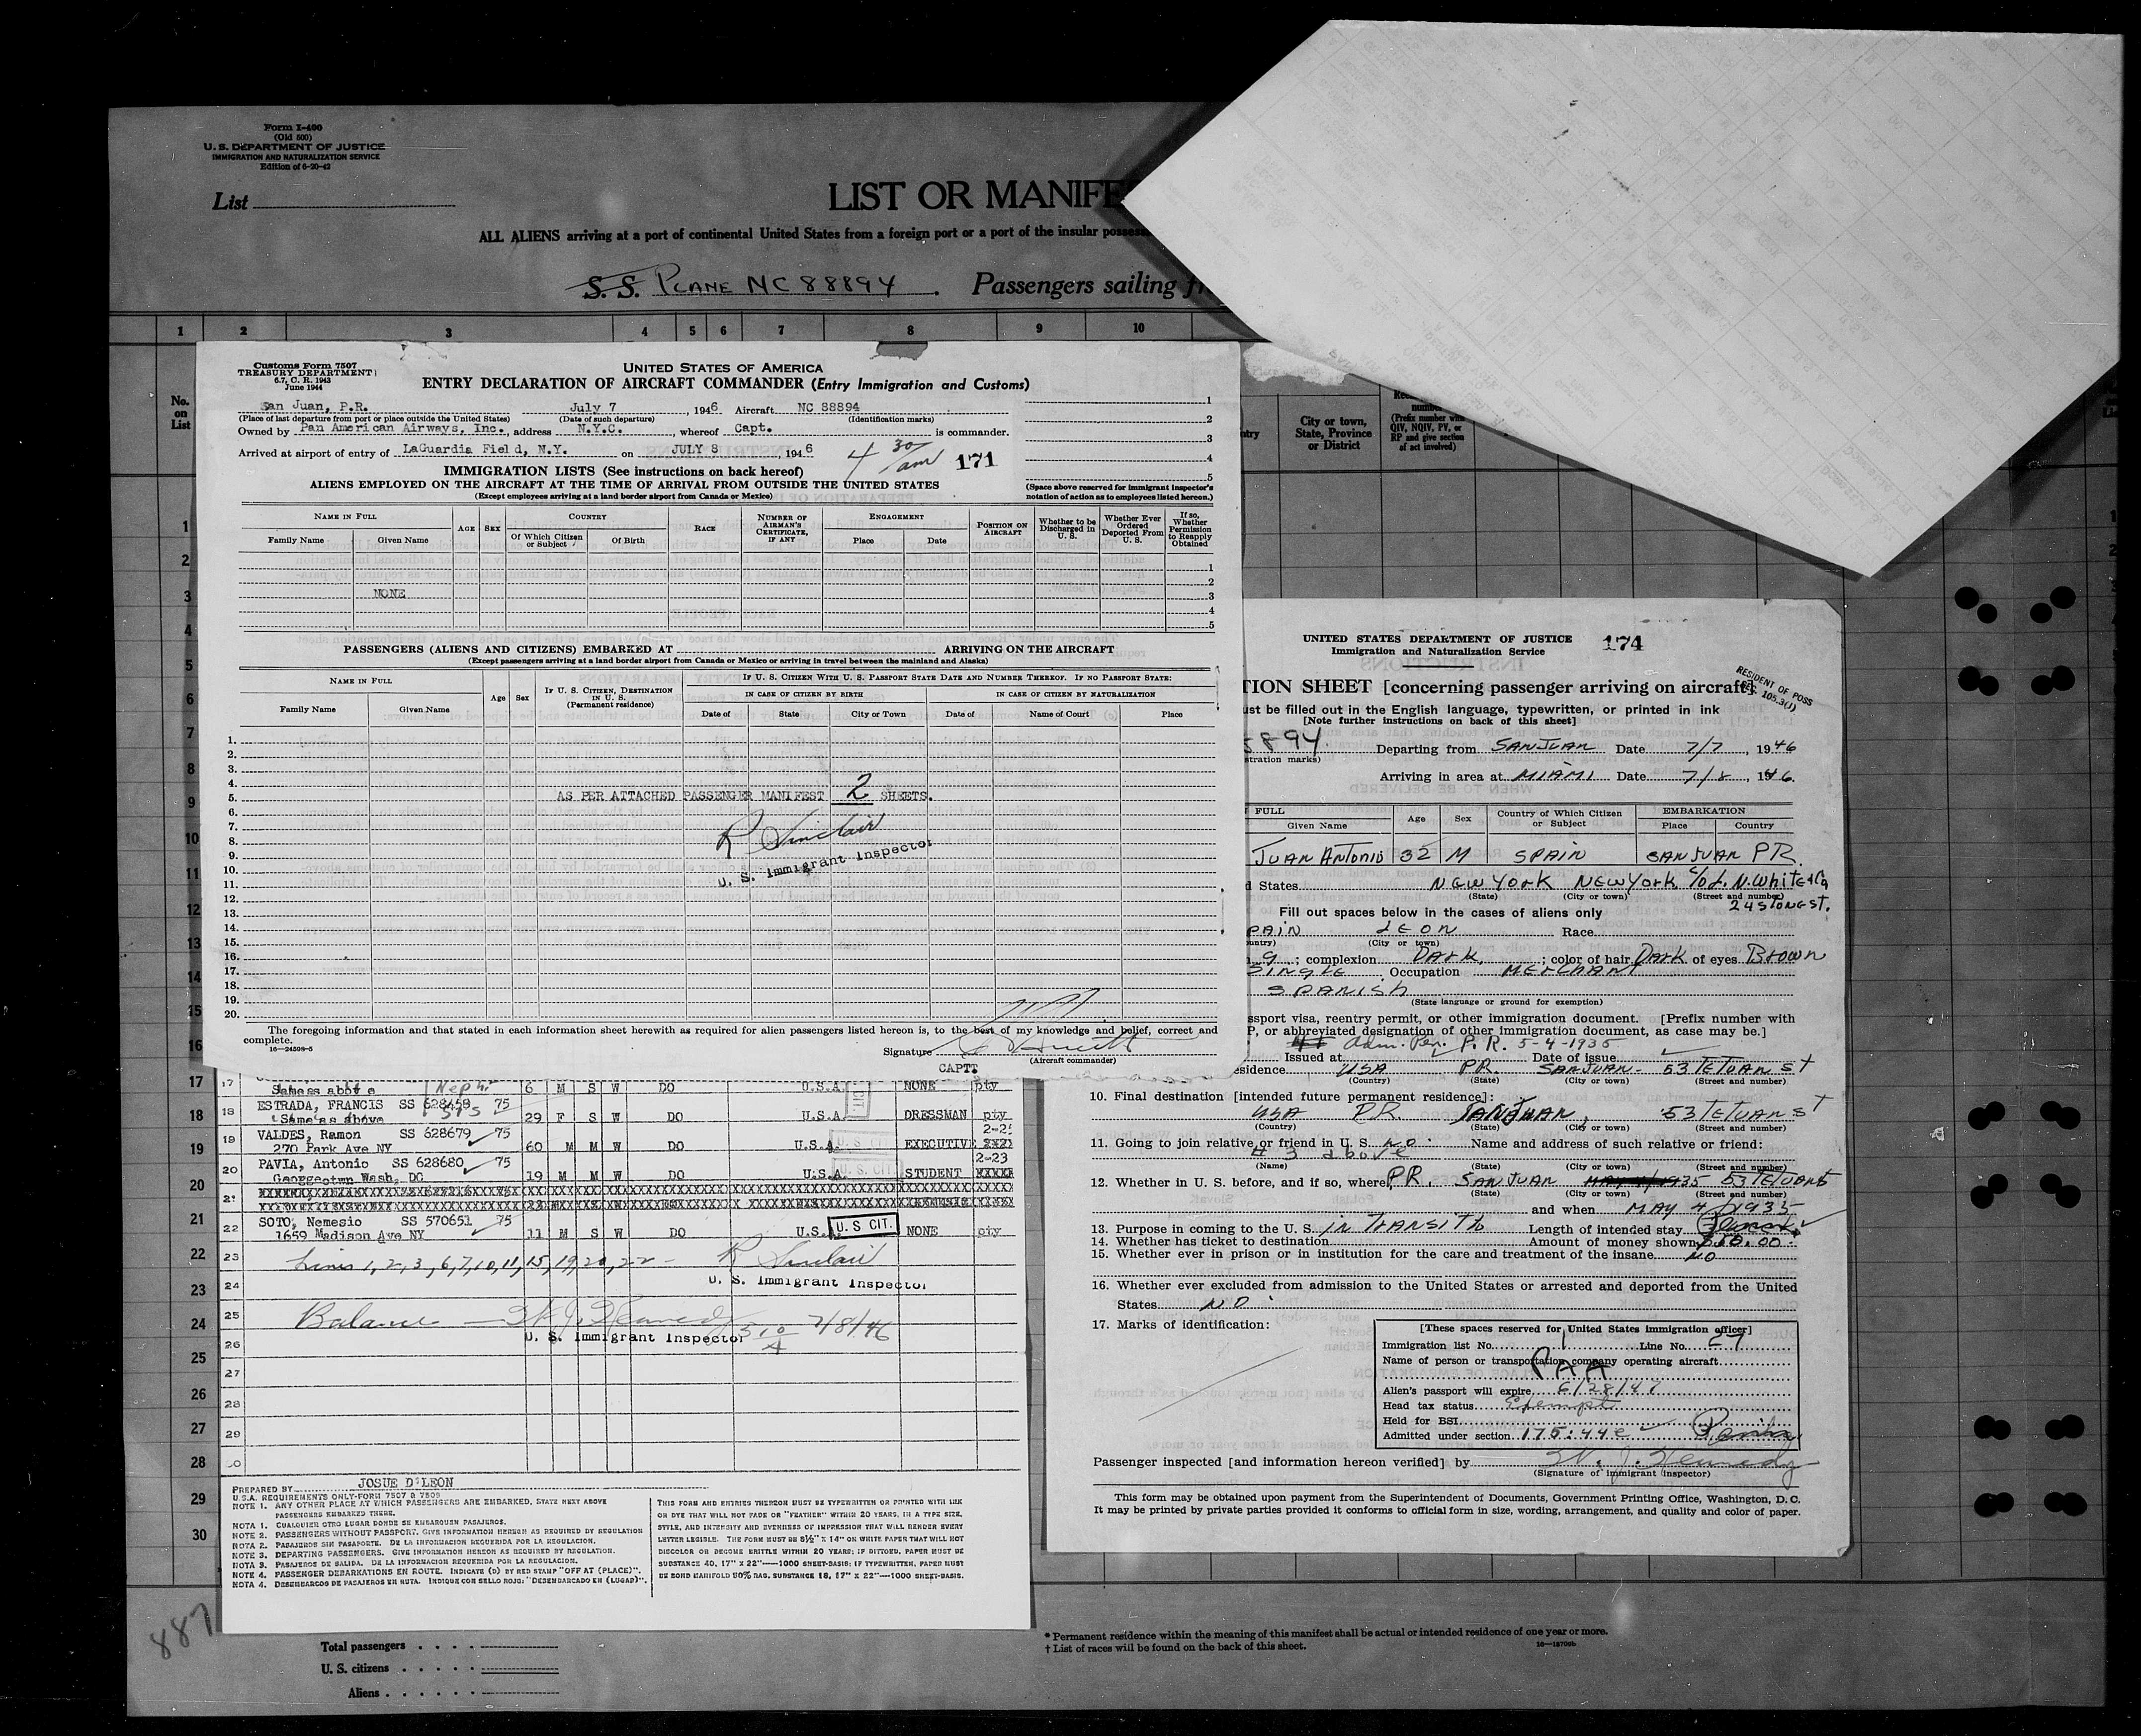 Form I-400
(Old 500)
U. S. DEPARTMENT OF JUSTICE
IMMIGRATION AND NATURALIZATION SERVICE
Edition of 6-20-42
List
LIST OR MANIFE
ALL ALIENS arriving at a port of continental United States from a foreign port or a port of the insular posses
S. S. PLANE NC 88894 . Passengers sailing fr
1 2 3 4 5 6 7 8 9 10
No. on List
City or town, State, Province or District
(Prefix number with QIV, NQIV, PV, or RP and give section of act involved)
Customs Form 7507
TREASURY DEPARTMENT
6.7, C. R. 1943
June 1944
UNITED STATES OF AMERICA
ENTRY DECLARATION OF AIRCRAFT COMMANDER (Entry Immigration and Customs)
San Juan, P.R. July 7, 1946 Aircraft NC 88894
(Place of last departure from port or place outside the United States) (Date of such departure) (Identification marks)
Owned by Pan American Airways, Inc., address N.Y.C., whereof Capt. is commander.
Arrived at airport of entry of LaGuardia Field, N.Y. on JULY 8, 1946 4 30/am 171
1
2
3
4
5
(Space above reserved for immigrant inspector's notation of action as to employees listed hereon.)
IMMIGRATION LISTS (See instructions on back hereof)
ALIENS EMPLOYED ON THE AIRCRAFT AT THE TIME OF ARRIVAL FROM OUTSIDE THE UNITED STATES
(Except employees arriving at a land border airport from Canada or Mexico)
NAME IN FULL AGE SEX COUNTRY RACE NUMBER OF AIRMAN'S CERTIFICATE, IF ANY ENGAGEMENT POSITION ON AIRCRAFT Whether to be Discharged in U. S. Whether Ever Ordered Deported From U. S. If so, Whether Permission to Reapply Obtained
Family Name Given Name Of Which Citizen or Subject Of Birth Place Date
1
2
NONE 3
4
5
PASSENGERS (ALIENS AND CITIZENS) EMBARKED AT ARRIVING ON THE AIRCRAFT
(Except passengers arriving at a land border airport from Canada or Mexico or arriving in travel between the mainland and Alaska)
NAME IN FULL Age Sex IF U. S. CITIZEN, DESTINATION IN U. S. (Permanent residence) IF U. S. CITIZEN WITH U. S. PASSPORT STATE DATE AND NUMBER THEREOF. IF NO PASSPORT STATE:
IN CASE OF CITIZEN BY BIRTH IN CASE OF CITIZEN BY NATURALIZATION
Family Name Given Name Date of State City or Town Date of Name of Court Place
1.
2.
3.
4.
5. AS PER ATTACHED PASSENGER MANIFEST 2 SHEETS.
6.
7. R Sinclair
8.
9. U. S. Immigrant Inspector
10.
11.
12.
13.
14.
15.
16.
17.
18.
19.
20.
The foregoing information and that stated in each information sheet herewith as required for alien passengers listed hereon is, to the best of my knowledge and belief, correct and
complete.
16—24598-5
Signature
(Aircraft commander)
CAPT.
17 Same as above Neph 6 M S W DO U.S.A. NONE pty
18 ESTRADA, FRANCIS SS 628468 75
Same as above 29 F S W DO U.S.A. DRESSMAN pty
19 VALDES, Ramon SS 628679 75
270 Park Ave NY 60 M M W DO U.S.A. EXECUTIVE
20 PAVIA, Antonio SS 628680 75 2-23
Georgeotwn Wash, DC 19 M M W DO U.S.A. U. S. CIT. STUDENT
21
22 SOTO, Nemesio SS 570651 75
1659 Madison Ave NY 11 M S W DO U.S. U. S CIT. NONE pty
23 Lines 1, 2, 3, 6, 7, 10, 11, 15, 19, 20, 22 - R Sinclair
24 U. S. Immigrant Inspector
25 Balance — W. J. Kennedy 7/8/46
26 U. S. Immigrant Inspector
27
28
29
PREPARED BY JOSUE D'LEON
U.S.A. REQUIREMENTS ONLY-FORM 7507 & 7509
NOTE 1. ANY OTHER PLACE AT WHICH PASSENGERS ARE EMBARKED, STATE NEXT ABOVE
PASSENGERS EMBARKED THERE.
NOTA 1. CUALQUIER OTRO LUGAR DONDE SE EMBARQUEN PASAJEROS.
NOTE 2. PASSENGERS WITHOUT PASSPORT. GIVE INFORMATION HEREON AS REQUIRED BY REGULATION
NOTA 2. PASAJEROS SIN PASAPORTE. DE LA INFORMACION REQUERIDA POR LA REGULACION.
NOTE 3. DEPARTING PASSENGERS. GIVE INFORMATION HEREON AS REQUIRED BY REGULATION.
NOTA 3. PASAJEROS DE SALIDA. DE LA INFORMACION REQUERIDA POR LA REGULACION.
NOTE 4. PASSENGER DEBARKATIONS EN ROUTE. INDICATE (D) BY RED STAMP "OFF AT (PLACE)".
NOTA 4. DESEMBARCOS DE PASAJEROS EN RUTA. INDIQUE CON SELLO ROJO: "DESEMBARCADO EN (LUGAR)".
THIS FORM AND ENTRIES THEREON MUST BE TYPEWRITTEN OR PRINTED WITH INK
OR DYE THAT WILL NOT FADE OR "FEATHER" WITHIN 20 YEARS, IN A TYPE SIZE,
STYLE, AND INTENSITY AND EVENNESS OF IMPRESSION THAT WILL RENDER EVERY
LETTER LEGIBLE. THE FORM MUST BE 8½" X 14" ON WHITE PAPER THAT WILL NOT
DISCOLOR OR BECOME BRITTLE WITHIN 20 YEARS; IF DITTOED, PAPER MUST BE
SUBSTANCE 40, 17" X 22"—1000 SHEET-BASIS; IF TYPEWRITTEN, PAPER MUST
BE BOND MANIFOLD 50% RAG. SUBSTANCE 18, 17" X 22"—1000 SHEET-BASIS.
UNITED STATES DEPARTMENT OF JUSTICE 174
Immigration and Naturalization Service
RESIDENT OF POSS
SEC. 105.3(J)
TION SHEET [concerning passenger arriving on aircraft]
ust be filled out in the English language, typewritten, or printed in ink
[Note further instructions on back of this sheet]
8894. Departing from SAN JUAN Date 7/7, 1946
stration marks)
Arriving in area at MIAMI Date 7/8, 1946.
FULL Age Sex Country of Which Citizen or Subject EMBARKATION
Given Name Place Country
JUAN ANTONIO 32 M SPAIN SAN JUAN PR.
d States NEW YORK NEW YORK c/o L. N. White & Co
(State) (City or town) (Street and number)
24 STONE ST.
Fill out spaces below in the cases of aliens only
PAIN LEON Race
untry) (City or town)
9 ; complexion DARK ; color of hair DARK of eyes BROWN
SINGLE , Occupation MERCHANT
SPANISH
(State language or ground for exemption)
ssport visa, reentry permit, or other immigration document. [Prefix number with
P, or abbreviated designation of other immigration document, as case may be.]
Adm. Per. P. R. 5-4-1935
Issued at Date of issue
esidence USA PR. SAN JUAN- 53 TETUAN ST
(Country) (State) (City or town) (Street and number)
10. Final destination [intended future permanent residence]:
USA PR. SAN JUAN, 53 TETUAN ST
(Country) (State) (City or town) (Street and number)
11. Going to join relative or friend in U. S. NO Name and address of such relative or friend:
# 3 above
(Name) (State) (City or town) (Street and number)
12. Whether in U. S. before, and if so, where, PR. SAN JUAN 53 TETUAN ST
(State) (City or town) (Street and number)
and when MAY 4, 1935
13. Purpose in coming to the U. S. in TRANSIT to Length of intended stay
14. Whether has ticket to destination Amount of money shown
15. Whether ever in prison or in institution for the care and treatment of the insane NO
16. Whether ever excluded from admission to the United States or arrested and deported from the United
States NO
17. Marks of identification:
[These spaces reserved for United States immigration officer]
Immigration list No. 1 Line No. 27
Name of person or transportation company operating aircraft
PAA
Alien's passport will expire 6/28/47
Head tax status Exempt
Held for BSI
Admitted under section 175:44e
Passenger inspected [and information hereon verified] by W. J. Kennedy
(Signature of immigrant inspector)
This form may be obtained upon payment from the Superintendent of Documents, Government Printing Office, Washington, D. C.
It may be printed by private parties provided it conforms to official form in size, wording, arrangement, and quality and color of paper.
887
Total passengers
U. S. citizens
Aliens
* Permanent residence within the meaning of this manifest shall be actual or intended residence of one year or more.
† List of races will be found on the back of this sheet.